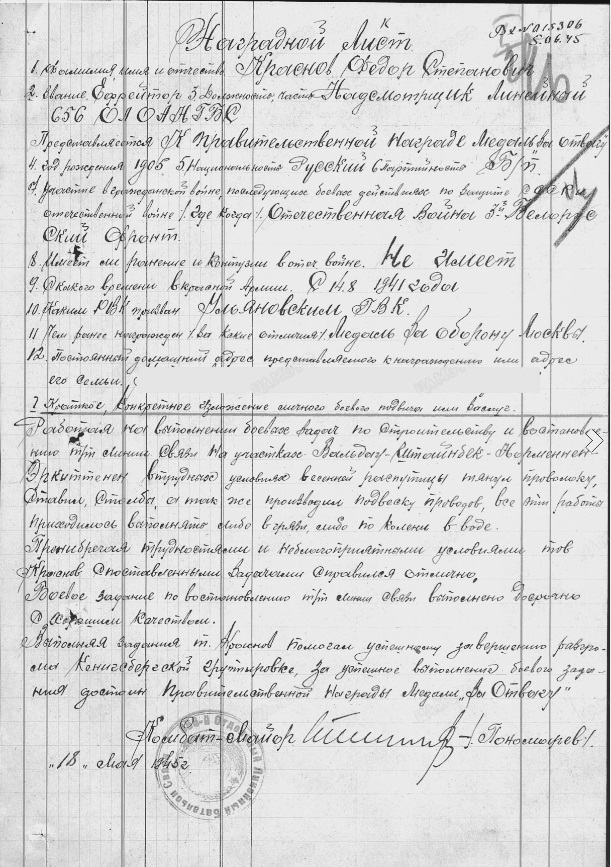 Вх №015306
5.06.45
Наградной Лист
1. Фамилия имя и отчество Краснов Федор Степанович
2. Звание Ефрейтор 3. Должность, часть Надсмотрщик Линейный
656 ОЛОАНГБС
Представляется К Правительственной Награде Медаль "За отвагу"
4. Год рождения 1905 5 Национальность Русский 6 Партийность Б/п.
Участие в гражданской войне, последующих боевых действиях по защите
отечественной войне /где когда/. Отечественная Война 3й Белорус
ский Фронт.
8. Имеет ли ранение и контузии в отеч войне. Не имеет
9. С какого времени в красной Армии. С 14.8 1941 года
10. Каким РВК призван Ульяновским ГВК.
11 Чем ранее награжден /за какие отличия/. Медаль За оборону Москвы.
12. Постоянный домашний адрес представляемого к награждению или адрес
его семьи.
I Краткое, Конкретное изложение личного боевого подвига или заслуг.
Работая на выполнении боевых задач по строительству и востановле
нию т/т линии связи на участках Вальдау-Штайнбек-
в трудных условиях весенней распутицы тянул проволоку,
Ставил, Столбы, а так же производил подвеску проводов, все эти работы
приходилось выполнять либо в грязи, либо по колени в воде.
Принебрегая трудностями и неблагоприятными условиями тов
Краснов споставленными задачами справился отлично,
Боевое задание по востоновлению т/т линии связи выполнено досрочно
с хорошим качеством.
Выполняя задания т. Краснов помогал успешному завершению разгро-
ма Кенигсбергской группировке, за успешное выполнение боевого зада-
ния достоин Правительственной Награды Медали "За Отвагу"
Комбат-Майор /Пономарев/.
"18" Мая 1945г
Отдельный Линейный Батальон Связи